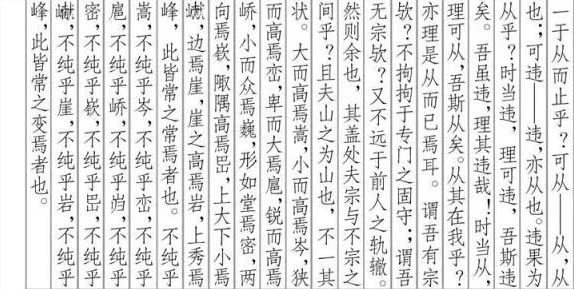 一于从而止乎？可从——从，从
也；可违——违，亦从也。违果为
从乎？时当违，理可违，吾斯违
矣。吾虽违，理其违哉！时当从，
理可从，吾斯从矣。从其在我乎？
亦理是从而已焉耳。谓吾有宗
欤？不拘拘于专门之固守；谓吾
无宗欤？又不远于前人之轨辙。
然则余也，其盖处夫宗与不宗之
间乎？且夫山之为山也，不一其
状。大而高焉嵩，小而高焉岑，狭
而高焉峦，卑而大焉扈，锐而高焉
峤，小而众焉巍，形如堂焉密，两
向焉嵚，陬隅高焉岊，上大下小焉
巘，边焉崖，崖之高焉岩，上秀焉
峰，此皆常之常焉者也。不纯乎
嵩，不纯乎岑，不纯乎峦，不纯乎
扈，不纯乎峤，不纯乎岿，不纯乎
密，不纯乎嵚，不纯乎岊，不纯乎
巘，不纯乎崖，不纯乎岩，不纯乎
峰，此皆常之变焉者也。